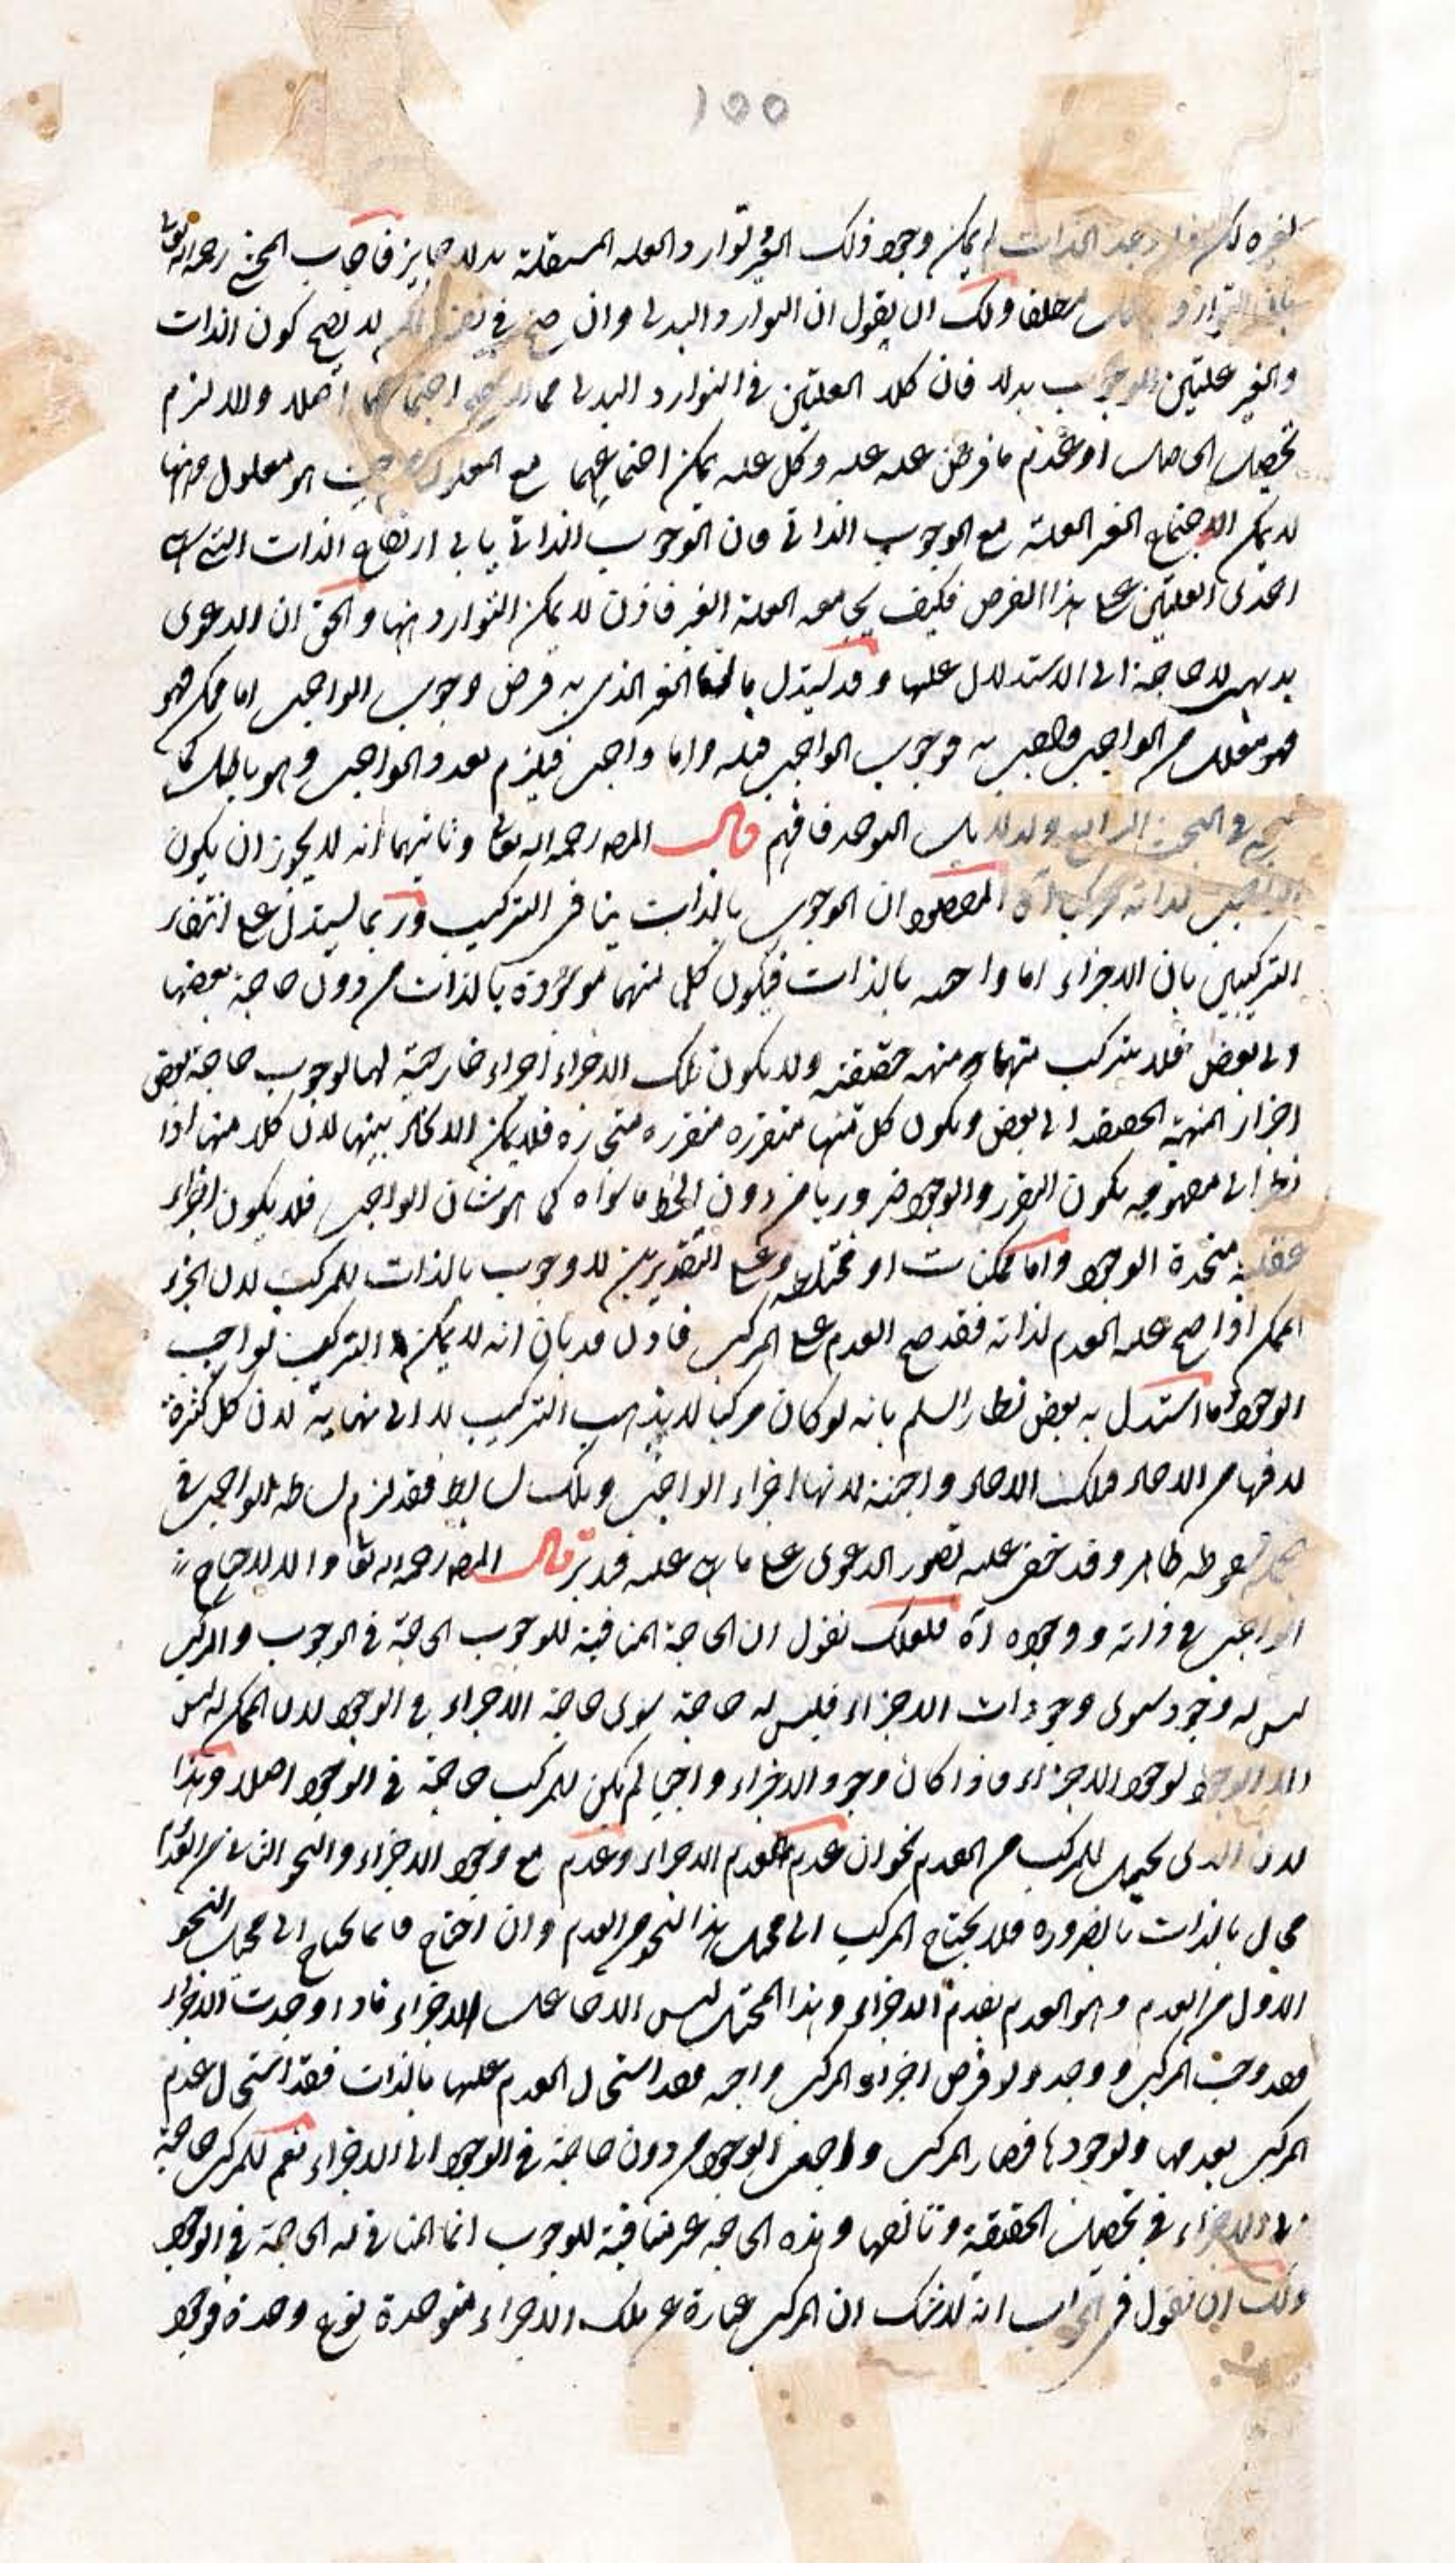 ١٥٥
لغيره لكن وجد الذات لم يمكن وجود ذلك الغير وتوارد العلة المستقلة بدلا جايز فاجاب المحشي رحمه الله تعالى
بان التوارد مطلقا ولك ان يقول ان التوارد البدلي وان صح في لا يصح كون الذات
والغير علتين للوجوب بدلا فان كلا العلتين في التوارد البدلي مما اجتماعهما اصلا والا لزم
تحصيل الحاصل او عدم ما فرض علة علة وكل علة يمكن اجتماعهما مع المعلول من حيث هو معلول وههنا
لا يمكن الاجتماع الغير العلة مع الوجوب الذاتي فان الوجوب الذاتي يابى ارتفاع الذات التي هي
احدى العلتين على هذا الفرض فكيف يجامعه العلة الغير فاذن لا يمكن التوارد ههنا والحق ان الدعوى
بديهي لا حاجة الى الاستدلال عليها وقد يستدل بان الغير الذي به فرض وجوب الواجب اما ممكن فهو
فهو معلول من الواجب فوجوب الواجب قبله واما واجب فيلزم تعدد الواجب وهو باطل كما
في البحث الرابع ولدلايل التوحد فافهم قال المصه رحمه الله تعالى وثانيهما انه لا يجوز ان يكون
الواجب لذاته مركبا آه المقصود ان الوجوب بالذات ينافي التركيب وربما يستدل على انتفاء
التركيبين بان الاجزاء اما واجبه بالذات فيكون كل منهما موجودة بالذات من دون حاجة بعضها
الى بعض فلا يتركب منهما منه حقيقته ولا يكون تلك الاجزاء اجزاء خارجية لها لوجوب حاجة بعض
اجزاء المهية الحقيقه الى بعض ويكون كل منها متقرره متقرره متحيزه فلا يمكن الاتحاد بينها لان كلا منها اذا
نظر الى مفهومه يكون التقرر والوجود ضروريا من دون لحاظ ما سواه كما هو شان الواجب فلا يكون اجزاء
عقلية متحدة الوجود واما ممكنات او مختلطه وعلى التقديرين لا وجوب بالذات للمركب لان الجزء
الممكن اذا صح عليه العدم لذاته فقد صح العدم على المركب فاذن قد بان انه لا يمكن التركيب لواجب
الوجود وما استدل به بعض نظار السلم بانه لو كان مركبا لا يذهب التركيب لا الى نهاية لان كل كثرة
لا بد فيها من الاحاد فتلك الاحاد واجبة لانها اجزاء الواجب وتلك بسايط فقد لزم بساطة الواجب في
سقوطه ظاهر وقد خفي عليه تصور الدعوى على ما عليه فتدبر قال المصه رحمه الله تعا والا لاحتاج
الواجب في ذاته ووجوده آه فلعلك تقول ان الحاجة المنافية للوجوب الحاجة في الوجوب والمركب
ليس له وجود سوى وجودات الاجزاء فليس له حاجة سوى حاجة الاجزاء في الوجود لان الممكن ليس
الا الوجود لوجود الاجزاء فاذا كان وجود الاجزاء واجبا لم يكن للمركب حاجة في الوجود اصلا وهذا
لان الذي يحيل للمركب من العدم نحوان عدم بعدم الاجزاء وعدم مع وجود الاجزاء والنحو الثاني من العدم
محال بالذات بالضرورة فلا يحتاج المركب الى محيل هذا النحو من العدم وان احتاج فانما يحتاج الى محيل النحو
الاول من العدم وهو العدم بعدم الاجزاء وهذا المحيل ليس الا جاعل الاجزاء فاذا وجدت الاجزاء
فقد وجب المركب ووجد ولا فرض اجزاء المركب واجبه فقد استحال العدم عليها بالذات فقد استحال عدم
المركب بعدمها ولوجودها فصار المركب واجب الوجود من دون حاجة في الوجود الى الاجزاء نعم للمركب حاجة
الى الاجزاء في تحصيل الحقيقة وتالفها وهذه الحاجة غير منافية للوجوب انما المنافي له الحاجة في الوجود
ولك ان تقول في الجواب انه لا شك ان المركب عبارة عن تلك الاجزاء متوحدة نوع وحدة فوجود